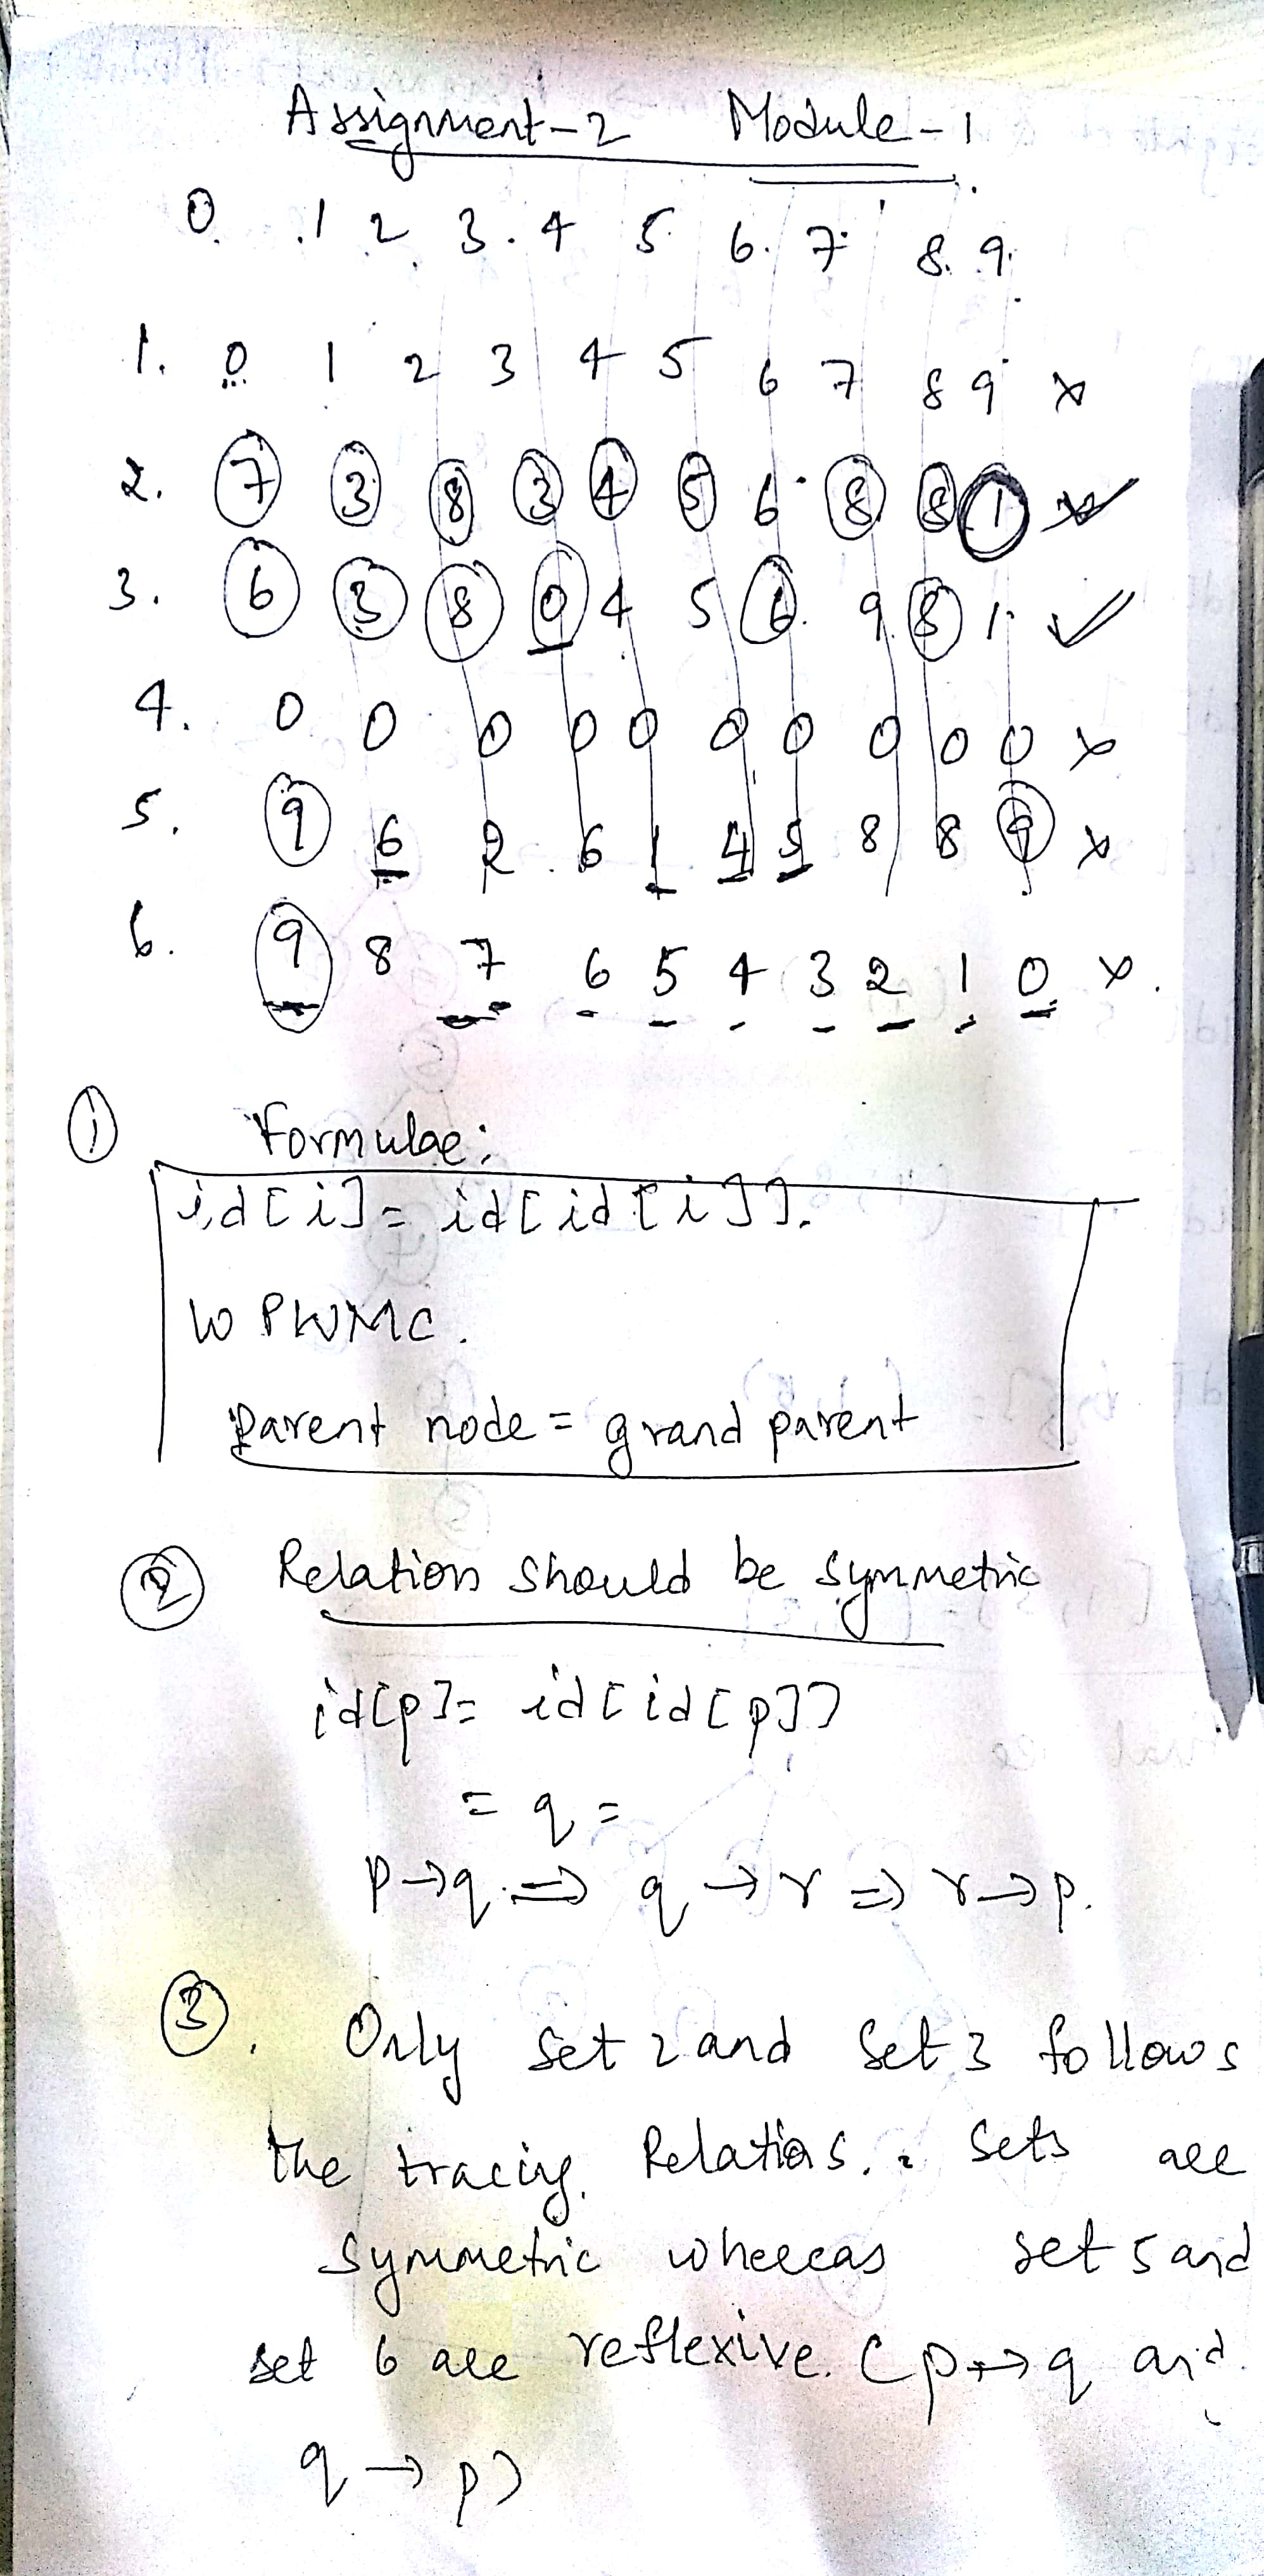 Assignment-2 Module-1
0. 1 2 3. 4 5 6. 7 8. 9.
1. 0 1 2 3 4 5 6 7 8 9 x
2. 7 3 8 3 4 5 6 8 8 1
3. 6 3 8 0 4 5 6. 9. 8 1 ✓
4. 0 0 0 0 0 0 0 0 0 0 x
5. 9 6 2 6 1 4 5 8 8 9 x
6. 9 8 7 6 5 4 3 2 1 0 x.
① Formulae:
id[i]= id[id[i]].
WPWMC.
Parent node = grand parent
② Relation should be symmetric
id[p]= id[id[p]]
= q =
p→q ⇒ q→r ⇒ r→p.
③. Only set 2 and set 3 follows
the tracing. Relatios. Sets are
symmetric whereas set 5 and
set 6 are reflexive. (p→q and
q→p)